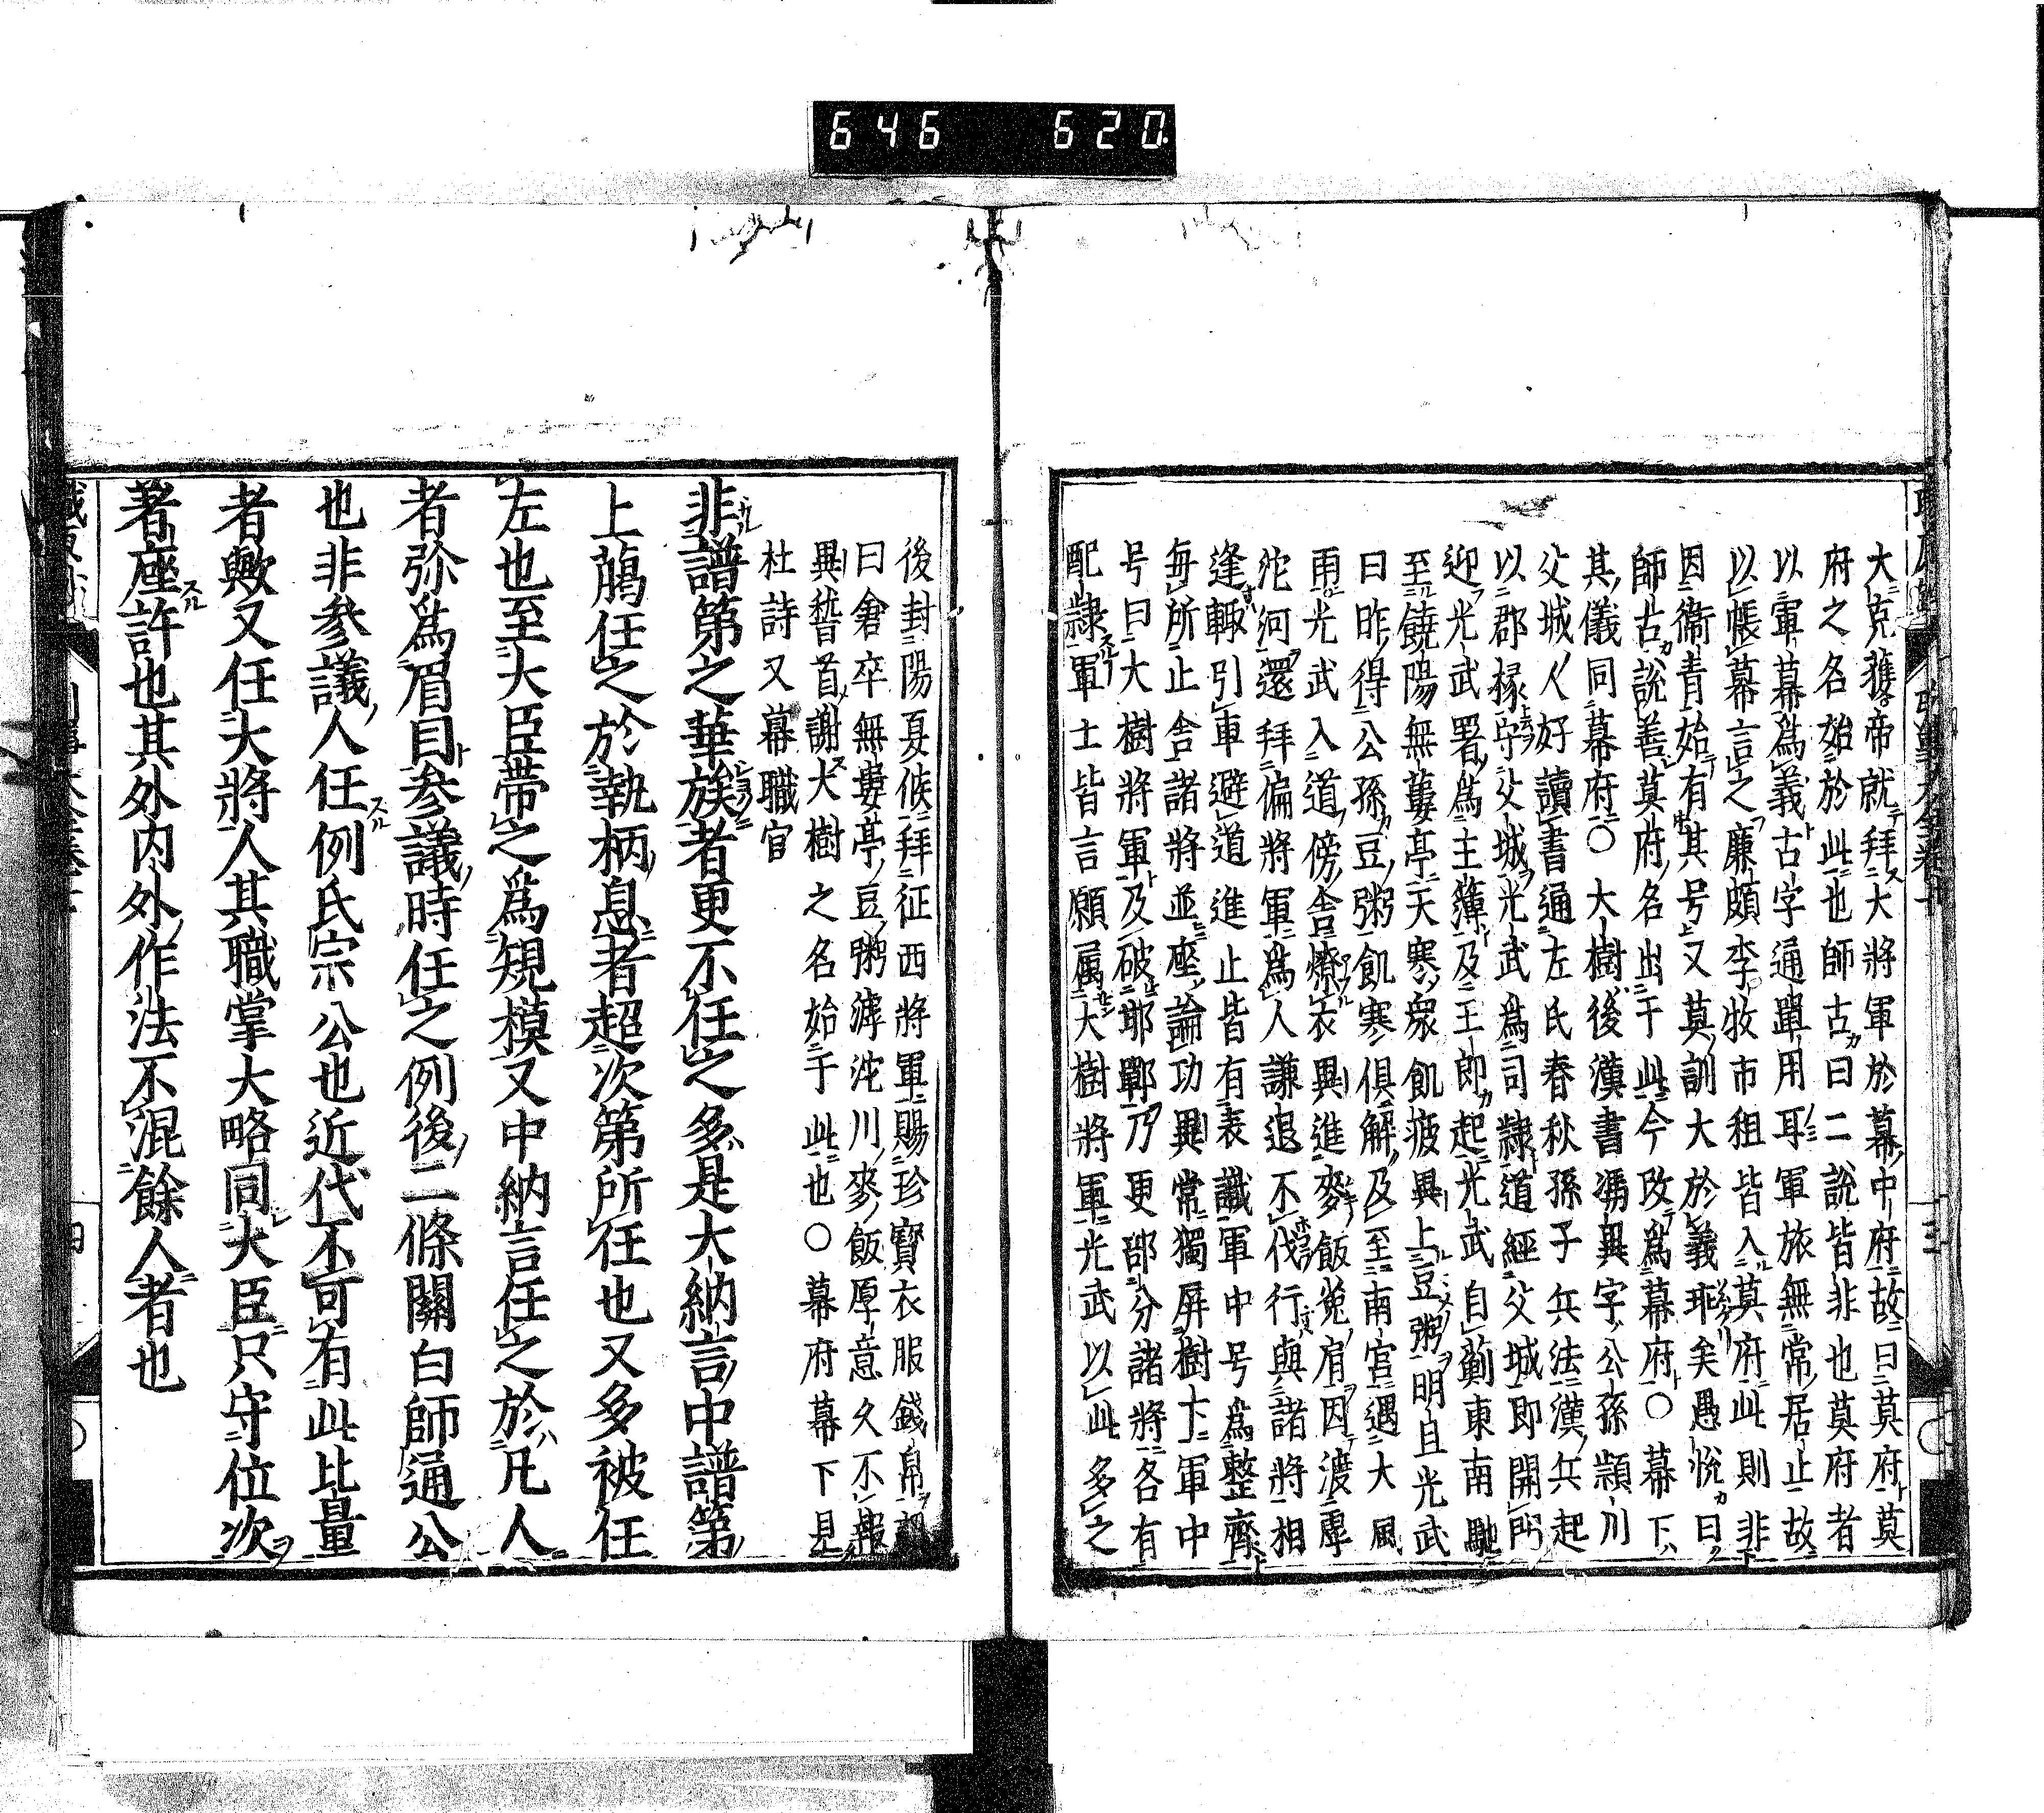 646 620.
大克獲帝就拜大將軍於幕中府故曰莫府莫
府之名始於此也師古曰二說皆非也莫府者
以軍幕為義古字通單用耳軍旅無常居止故
以帳幕言之廉頗李牧市租皆入莫府此則非
因衛青始有其号又莫訓大於義乖矣愚悅曰
師古說善莫府名出于此今改為幕府○幕下
其儀同幕府○大樹後漢書馮異字公孫潁川
父城人好讀書通左氏春秋孫子兵法漢兵起
以郡掾守父城光武為司隷道經父城即開門
迎光武署為主薄及王郎起光武自薊東南馳
至饒陽無蔞亭天寒衆飢疲異上豆粥明旦光武
曰昨得公孫豆粥飢寒俱解及至南宮遇大風
雨光武入道傍舎燎衣異進麥飯菟肩因渡虖
沱河還拜偏將軍為人謙退不伐行與諸將相
逢輙引車避道進止皆有表識軍中号為整齊
毎所止舎諸將並座論功異常獨屏樹下軍中
号曰大樹將軍及破邯鄲乃更部分諸將各有
配隷軍士皆言願属大樹將軍光武以此多之
後封陽夏候拜征西將軍賜珍寶衣服錢帛
曰倉卒無蔞亭豆粥滹沱川麥飯厚意久不報
異稽首謝大樹之名始于此也○幕府幕下見
杜詩又幕職官
非譜第之華族者更不任之多是大納言中譜第
上﨟任之於執柄息者超次第所任也又多被任
左也至大臣帯之為規模又中納言任之於凡人
者弥為眉目参議時任之例後二條關白師通公
也非参議人任例氏宗公也近代不可有此比量
者歟又任大將人其職掌大略同大臣只守位次
著座許也其外内外作法不混餘人者也